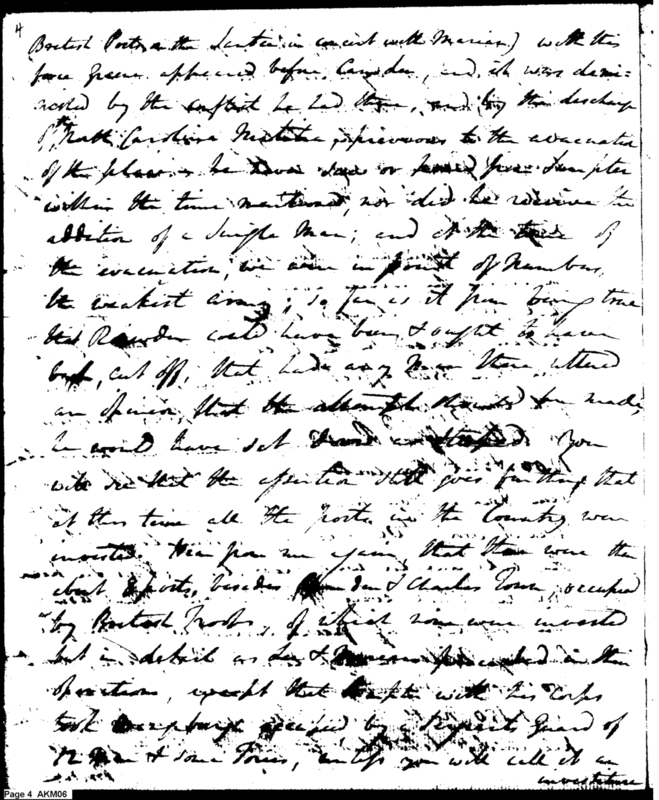 4
British Posts on the Santee in concert with Marion) with this
force Greene appeared before Camden, and it was dimi-
nished by the conflict he had there, and by the discharge
of the North Carolina Militia, previous to the evacuation
of the place - he never saw or from Sumpter
within the time mentioned, nor did he receive the
addition of a single Man; and at the time of
the evacuation, we were in point of Numbers,
the weakest army; so far is it from being true
that Rawdon could have been & ought to have
been, cut off, that had any Man there uttered
an opinion, that the attempt should be made,
he would have set down as stupid. You
will see that the assertion still goes further that
at this time all the posts in the Country were
invested. Hear from me again, that there were then
about 8 posts, besides Camden & Charles Town, occupied
by British Troops, of which none were invested
but in detail as Lee & Marion proceeded in their
operations, except that Sumpter with his Corps
took Orangeburgh occupied by a Serjeants Guard of
12 Men & some Tories, unless you will call it an
investiture
Page 4 AKM06